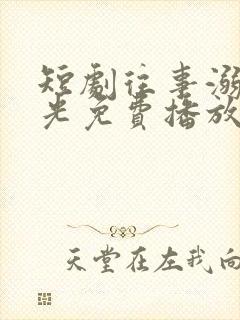 短剧往事溺
光免费播放
天堂在左我向